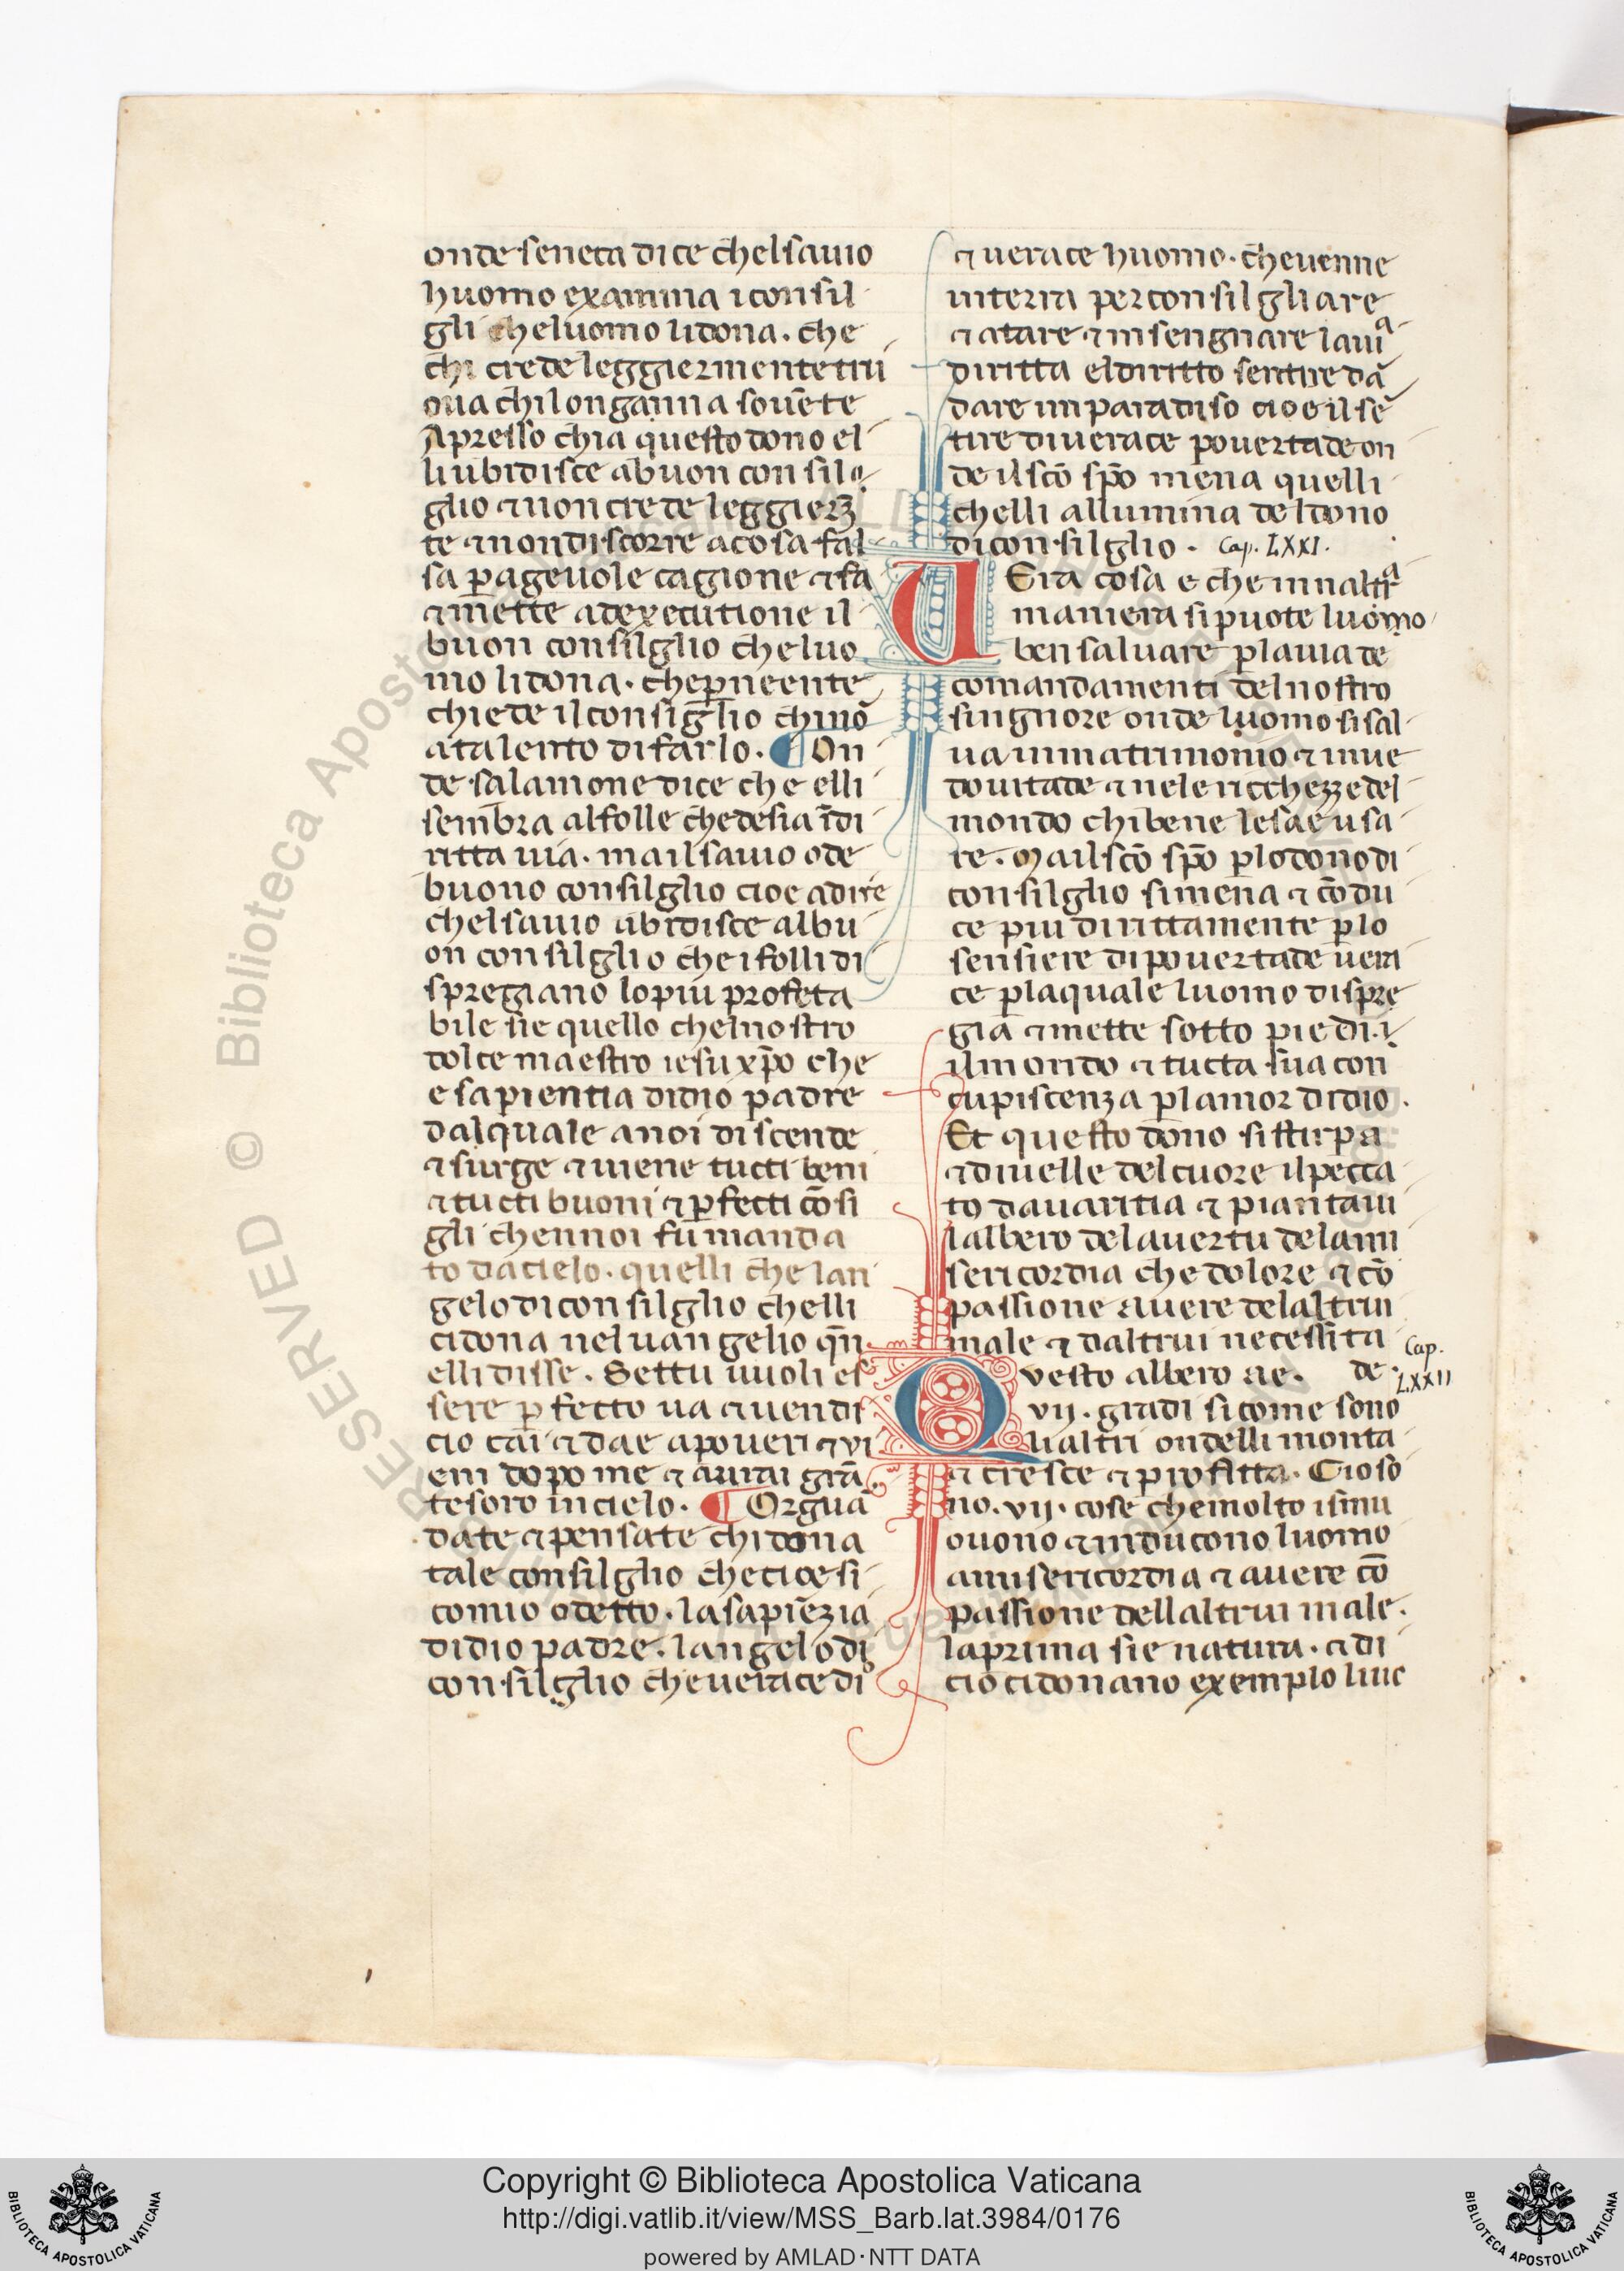 onde seneca dice chelsauio
huomo examina iconsil
gli cheluomo lidona. che
chi crede leggiermente tru
oua chilonganna souēte
Apresso chia questo dono el
li ubidisce abuon consil
glio ⁊ non crede leggierm̄
te ⁊ non discorre acosa fal
sa ꝑ ageuole cagione ⁊ fa
⁊ mette ad executione il
buon consilglio cheluo
mo lidona. cheꝑ neente
chiede il consiglio chi nō
a talento di farlo. ¶ On
de salamone dice che elli
sembra alfolle chedesia ī di
ritta uia. mail sauio ode
buono consilglio cioe adire
chelsauio ubidisce albu
on consilglio che ifolli di
spregiano lopiu profeta
bile sie quello chelnostro
dolce maestro iesu xp̄o che
e sapientia didio padre
dalquale anoi discende
⁊ surge ⁊ uiene tucti beni
⁊ tucti buoni ⁊ ꝑfecti cōsi
gli chennoi fu manda
to dacielo. quelli che lan
gelo di consilglio chelli
cidona neluangelio qn̄
elli disse. Settu uuoli es
sere ꝑfecto ua ⁊ uendi
cio cai ⁊ dae apoueri ⁊ vi
eni dopo me ⁊ aurai grā
tesoro in cielo. ¶ Or guā
date ⁊ pensate chi dona
tale consilglio che ci oe si
comio odetto. la sapiēzia
didio padre. langelo di
consilglio che uerace dio
⁊ uerace huomo. che uenne
interra per consilgliare
⁊ atare ⁊ insengnare lauia
diritta eldiritto sentire dā
dare imparadiso cioe il sē
tire di uerace pouertade on
de ilsc̄o sp̄o mena quelli
chelli allumina deldono
di consilglio. Cap. LXXI.
Uera cosa e che innaltra
maniera si puote luomo
ben saluare ꝑ lauia de
comandamenti delnostro
singnore onde luomo si sal
ua immatrimonio ⁊ inue
douitade ⁊ nele riccheze del
mondo chi bene lesae usa
re. Mail sc̄o sp̄o ꝑ lodono di
consilglio simena ⁊ cōdu
ce piu dirittamente ꝑ lo
sensiere di pouertade uera
ce ꝑ laquale luomo dispre
gia ⁊ mette sotto piedi
ilmondo ⁊ tucta sua con
cupiscenza ꝑ lamor didio.
Et questo dono si stirpa
⁊ diuelle del cuore il pecca
to dauaritia ⁊ piantaui
lalbero delauertu delami
sericordia che dolore ⁊ cō
passione auere delaltrui
male ⁊ daltrui necessita
de. Cap. LXXII
Questo albero ae.
vij. gradi si come sono
li altri ondelli monta
⁊ cresce ⁊ profitta. Cio so
no. vij. cose che molto ismu
ouono ⁊ inducono luomo
amisericordia ⁊ auere cō
passione dellaltrui male.
laprima sie natura. ⁊ di
cio cidonano exemplo liuc
Copyright © Biblioteca Apostolica Vaticana
http://digi.vatlib.it/view/MSS_Barb.lat.3984/0176
powered by AMLAD·NTT DATA
BIBLIOTECA APOSTOLICA VATICANA
BIBLIOTECA APOSTOLICA VATICANA